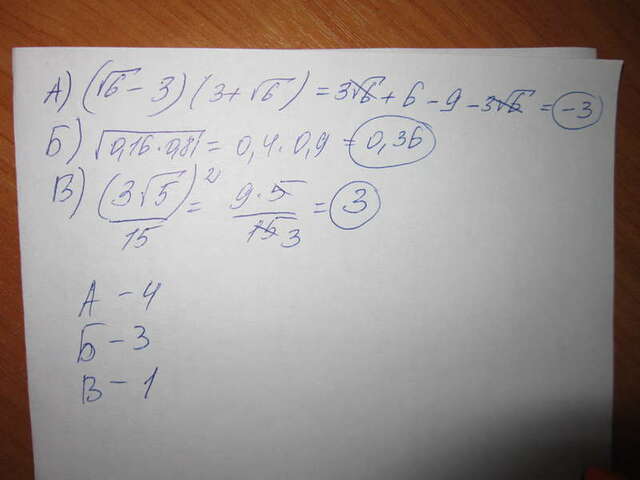 А) (√6 - 3)(3 + √6) = 3√6 + 6 - 9 - 3√6 = -3
Б) √0,16 · 0,81 = 0,4 · 0,9 = 0,36
В) (3√5)²/15 = 9·5/15 3 = 3
А - 4
Б - 3
В - 1